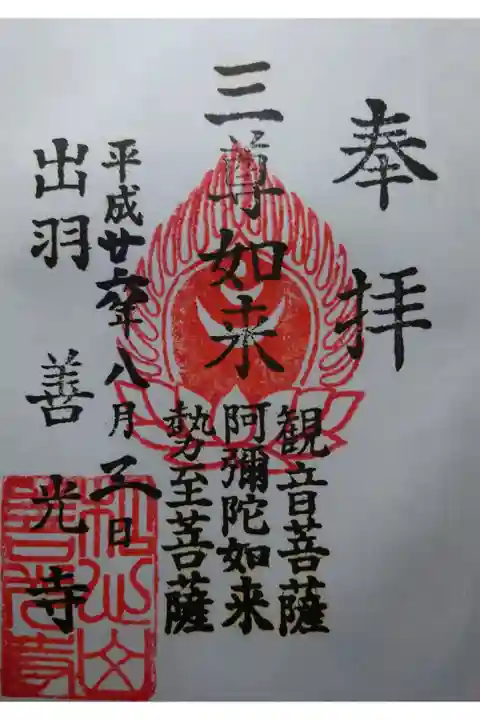 奉拝
三尊如来
観音菩薩
阿彌陀如来
勢至菩薩
平成廿六年八月 日
出羽 善光寺